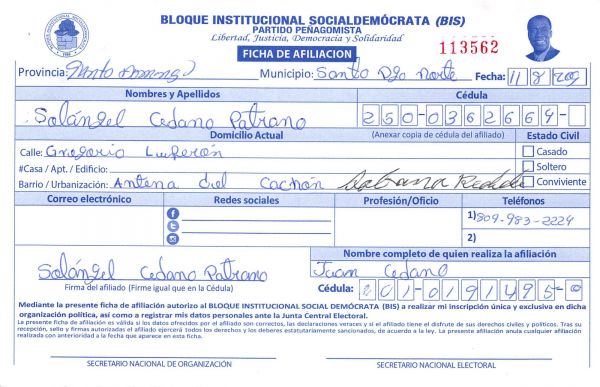 BLOQUE INSTITUCIONAL SOCIALDEMÓCRATA (BIS)
PARTIDO PEÑAGOMISTA
Libertad, Justicia, Democracia y Solidaridad
FICHA DE AFILIACION
113562
Provincia: Santo Domingo Municipio: Santo Dgo Norte Fecha: 11/8/209
Nombres y Apellidos Cédula
Solángel Cedano Patrano 250-0362664-
Domicilio Actual (Anexar copia de cédula del afiliado) Estado Civil
Calle: Gregorio Luperón Casado
#Casa / Apt. / Edificio: Soltero
Barrio / Urbanización: Antena del Cachón Sabana Conviviente
Correo electrónico Redes sociales Profesión/Oficio Teléfonos
1) 809-983-2224
2)
Nombre completo de quien realiza la afiliación
Solángel Cedano Patrano Juan Cedano
Firma del afiliado (Firme igual que en la Cédula) Cédula: 001-0191495-0
Mediante la presente ficha de afiliación autorizo al BLOQUE INSTITUCIONAL SOCIAL DEMÓCRATA (BIS) a realizar mi inscripción única y exclusiva en dicha
organización política, así como a registrar mis datos personales ante la Junta Central Electoral.
La presente ficha de afiliación es válida si los datos ofrecidos por el afiliado son correctos, las declaraciones veraces y si el afiliado tiene el disfrute de sus derechos civiles y políticos. Tras su
recepción, sello y firmas autorizadas el afiliado ejercerá todos los derechos y los deberes estatutariamente sancionados, de acuerdo a la ley. La presente afiliación anula cualquier afiliación
realizada con anterioridad a la fecha que aparece en esta ficha.
SECRETARIO NACIONAL DE ORGANIZACIÓN SECRETARIO NACIONAL ELECTORAL